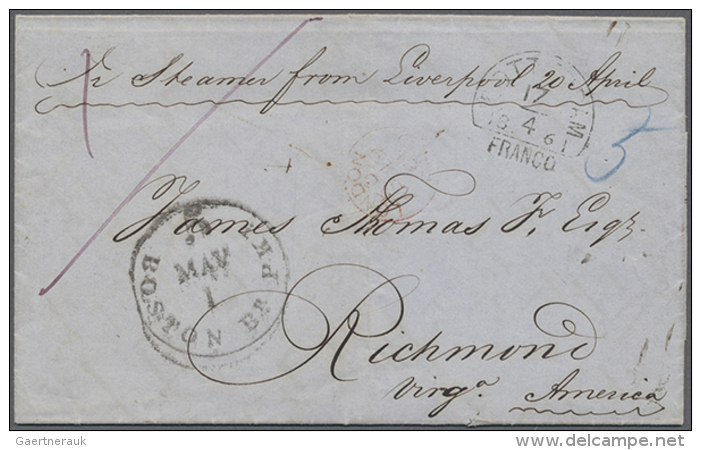 Pr Steamer from Liverpool 20 April
18 4 61
FRANCO
5
LONDON
James Thomas Jr, Esqr.
BOSTON BR. PKT
MAY
1
Richmond
Virga. America
Gaertnerauk
delcampe.net